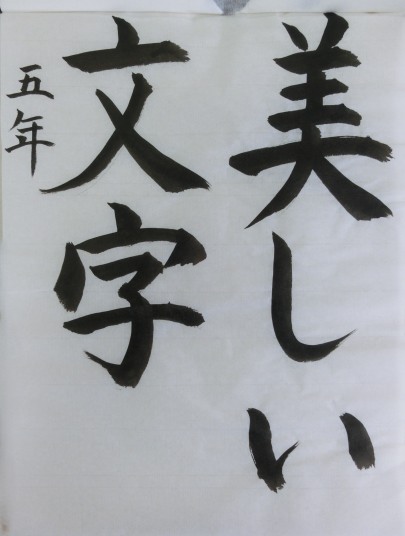 美しい
文字
五年